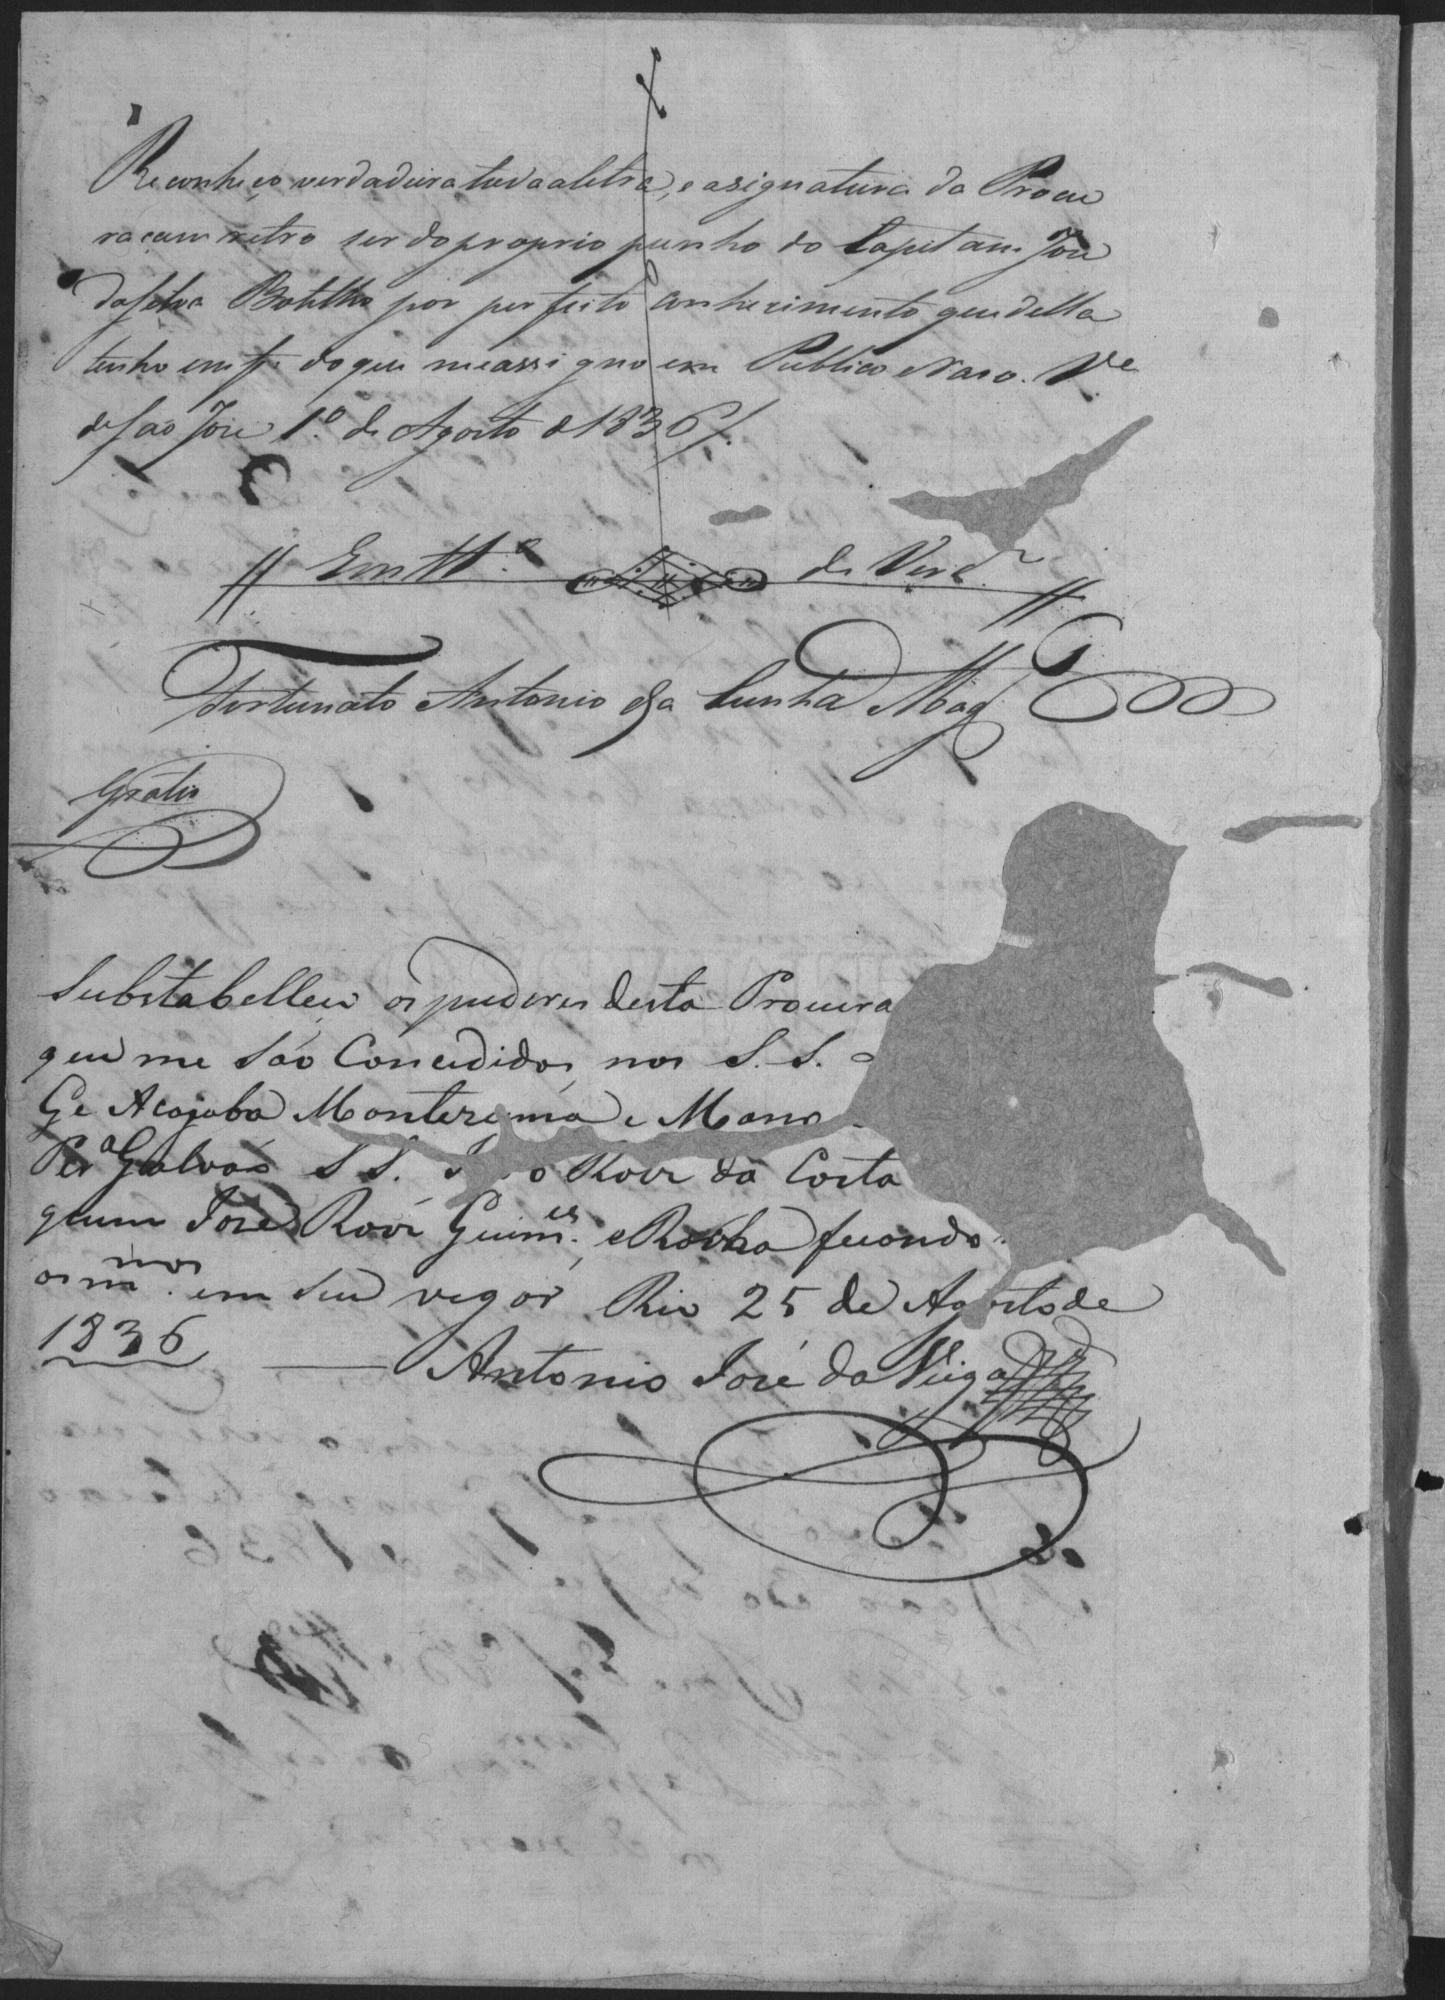 Reconheço verdadeira toda a letra, e asignatura da Procu
raçam retro ser do proprio punho do Capitam Joze
da Silva Botelho por perfeito conhecimento que della
tenho em fe do que me assigno em Publico e Raso. Va
de Sao Joze 1.º de Agosto d 1836/.
Em tt.º de Verd.e
Fortunato Antonio da Cunha Mag
Gratis
Substabelleco os puderes desta Procura
que me são Concedidos nos S. S.
Ge Acajaba Montezuma e Mano
Per.a Galvão S S. Roiz da Costa
quim José Roiz Guim.es e Rocha ficando
os m.mos em seu vigor Rio 25 de Agosto de
1836 Antonio José da Veiga